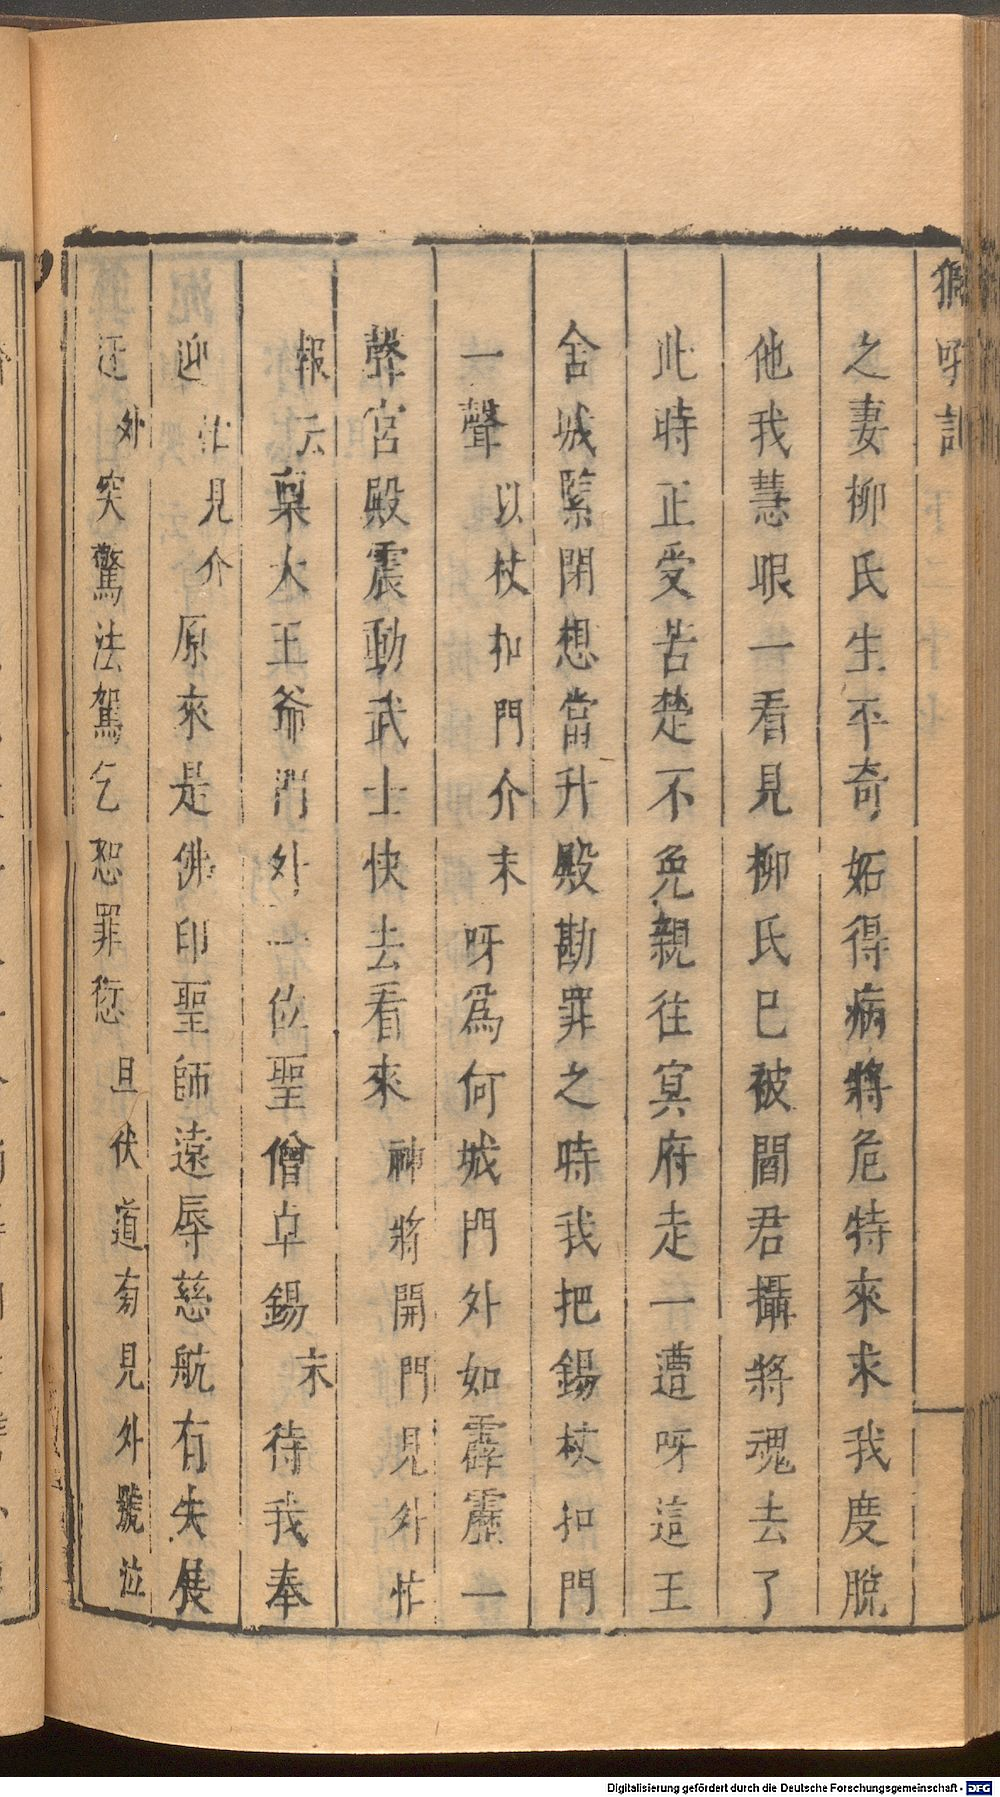 獅吼記
之妻柳氏生不奇妬得病將危特來求我度脫
他我慧眼一看見柳氏已被閻君攝將魂去了
此時正受苦楚不免親往冥府走一遭呀這王
舍城緊閉想當升殿勘罪之時我把錫杖扣門
一聲以杖扣門介末呀爲何城門外如霹靂一
聲宮殿震動武士快去看來神將開門見外忙
報云稟大王爺門外一位聖僧卓錫末待我奉
迎忙見介原來是佛印聖師遠辱慈航有失展
迓外突驚法駕乞恕罪愆旦伏道旁見外號泣
Digitalisierung gefördert durch die Deutsche Forschungsgemeinschaft - DFG